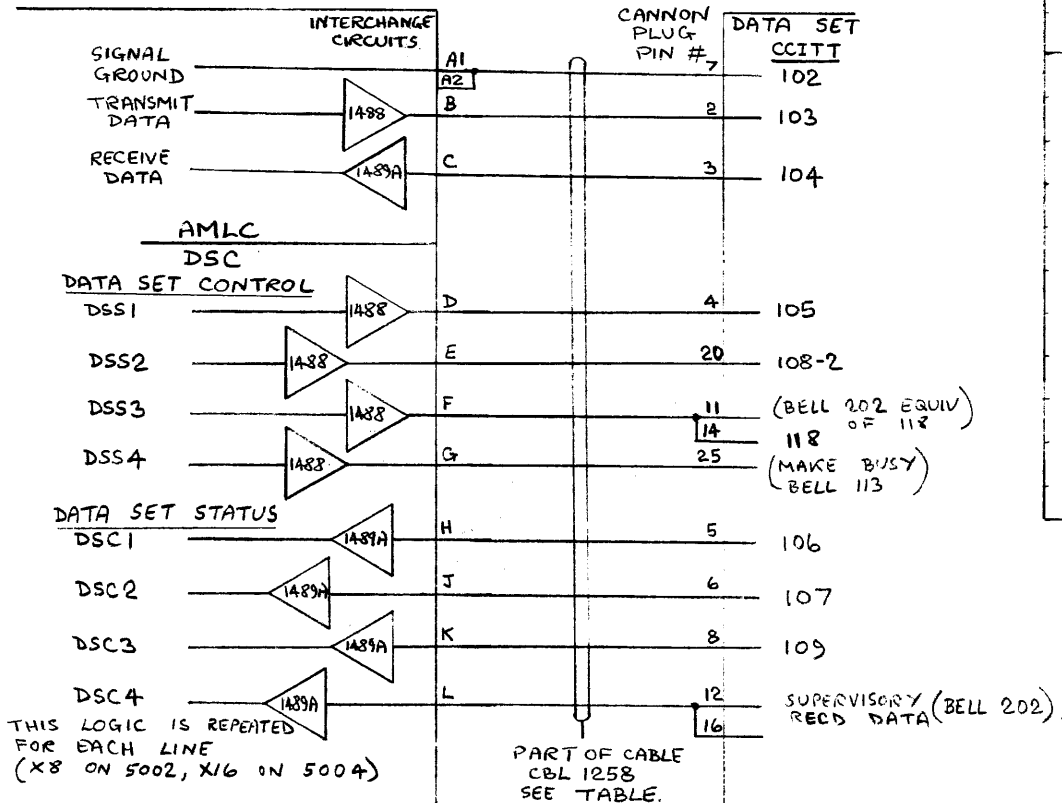 INTERCHANGE
CIRCUITS
CANNON
PLUG
PIN #
DATA SET
CCITT
SIGNAL
GROUND
A1
A2
7
102
TRANSMIT
DATA
1488
B
2
103
RECEIVE
DATA
1489A
C
3
104
AMLC
DSC
DATA SET CONTROL
DSS1
1488
D
4
105
DSS2
1488
E
20
108-2
DSS3
1488
F
11
(BELL 202 EQUIV
OF 118)
14
118
DSS4
1488
G
25
(MAKE BUSY)
BELL 113
DATA SET STATUS
DSC1
1489A
H
5
106
DSC2
1489A
J
6
107
DSC3
1489A
K
8
109
DSC4
1489A
L
12
16
SUPERVISORY (BELL 202).
RECD DATA
THIS LOGIC IS REPEATED
FOR EACH LINE
(X8 ON 5002, X16 ON 5004)
PART OF CABLE
CBL 1258
SEE TABLE.